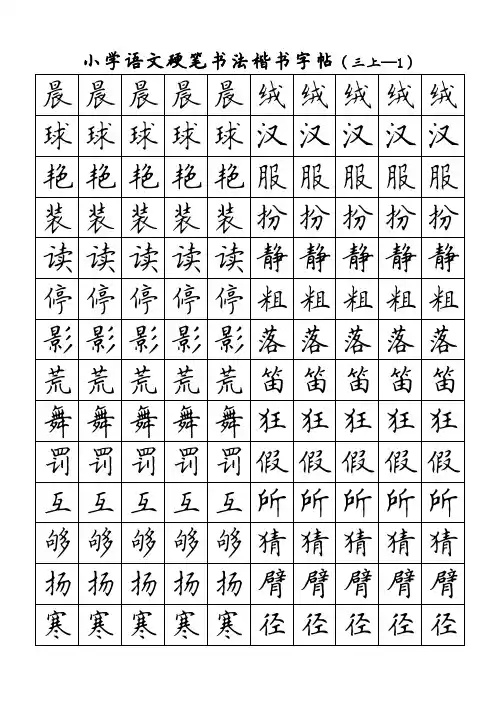 小学语文硬笔书法楷书字帖（三上—1）
晨晨晨晨晨绒绒绒绒绒
球球球球球汉汉汉汉汉
艳艳艳艳艳服服服服服
装装装装装扮扮扮扮扮
读读读读读静静静静静
停停停停停粗粗粗粗粗
影影影影影落落落落落
荒荒荒荒荒笛笛笛笛笛
舞舞舞舞舞狂狂狂狂狂
罚罚罚罚罚假假假假假
互互互互互所所所所所
够够够够够猜猜猜猜猜
扬扬扬扬扬臂臂臂臂臂
寒寒寒寒寒径径径径径